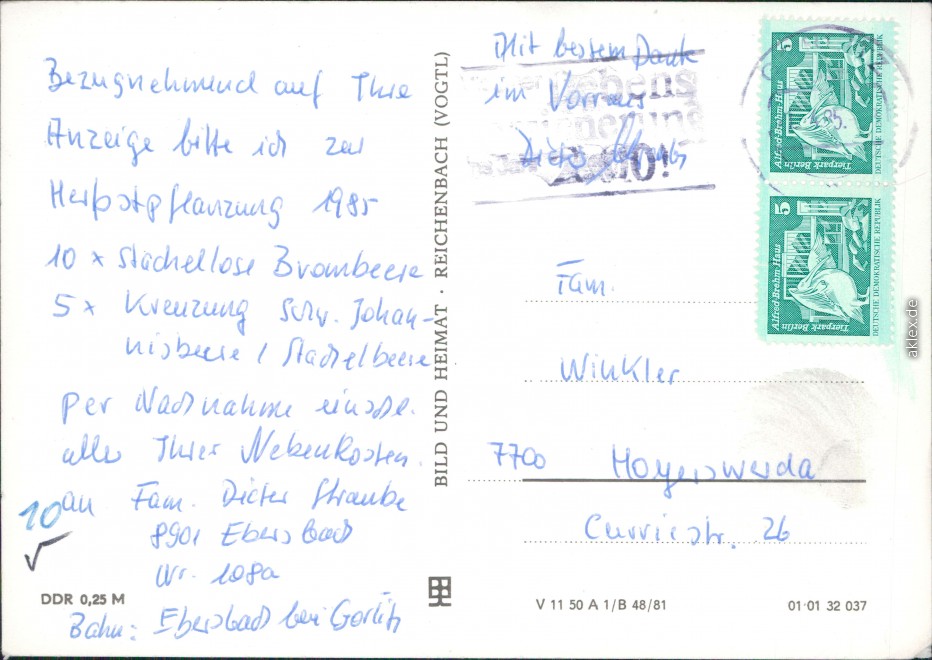 Bezugnehmend auf Ihre
Anzeige bitte ich zur
Herbstpflanzung 1985
10 x Stachellose Brombeere
5 x Kreuzung Schw. Johan-
nisbeere / Stachelbeere
per Nachnahme einschl.
aller Ihrer Nebenkosten.
an Fam. Dieter Straube
8901 Ebersbach
Nr. 108a
Bahn: Ebersbach bei Görlitz
10
DDR 0,25 M
BILD UND HEIMAT · REICHENBACH (VOGTL)
Mit bestem Dank
im Vorraus
Dieter Straube
Fam.
Winkler
7700 Hoyerswerda
Curiestr. 26
V 11 50 A 1/B 48/81
01 01 32 037
5
Alfred-Brehm-Haus
Tierpark Berlin
DEUTSCHE DEMOKRATISCHE REPUBLIK
5
Alfred-Brehm-Haus
Tierpark Berlin
DEUTSCHE DEMOKRATISCHE REPUBLIK
aklex.de